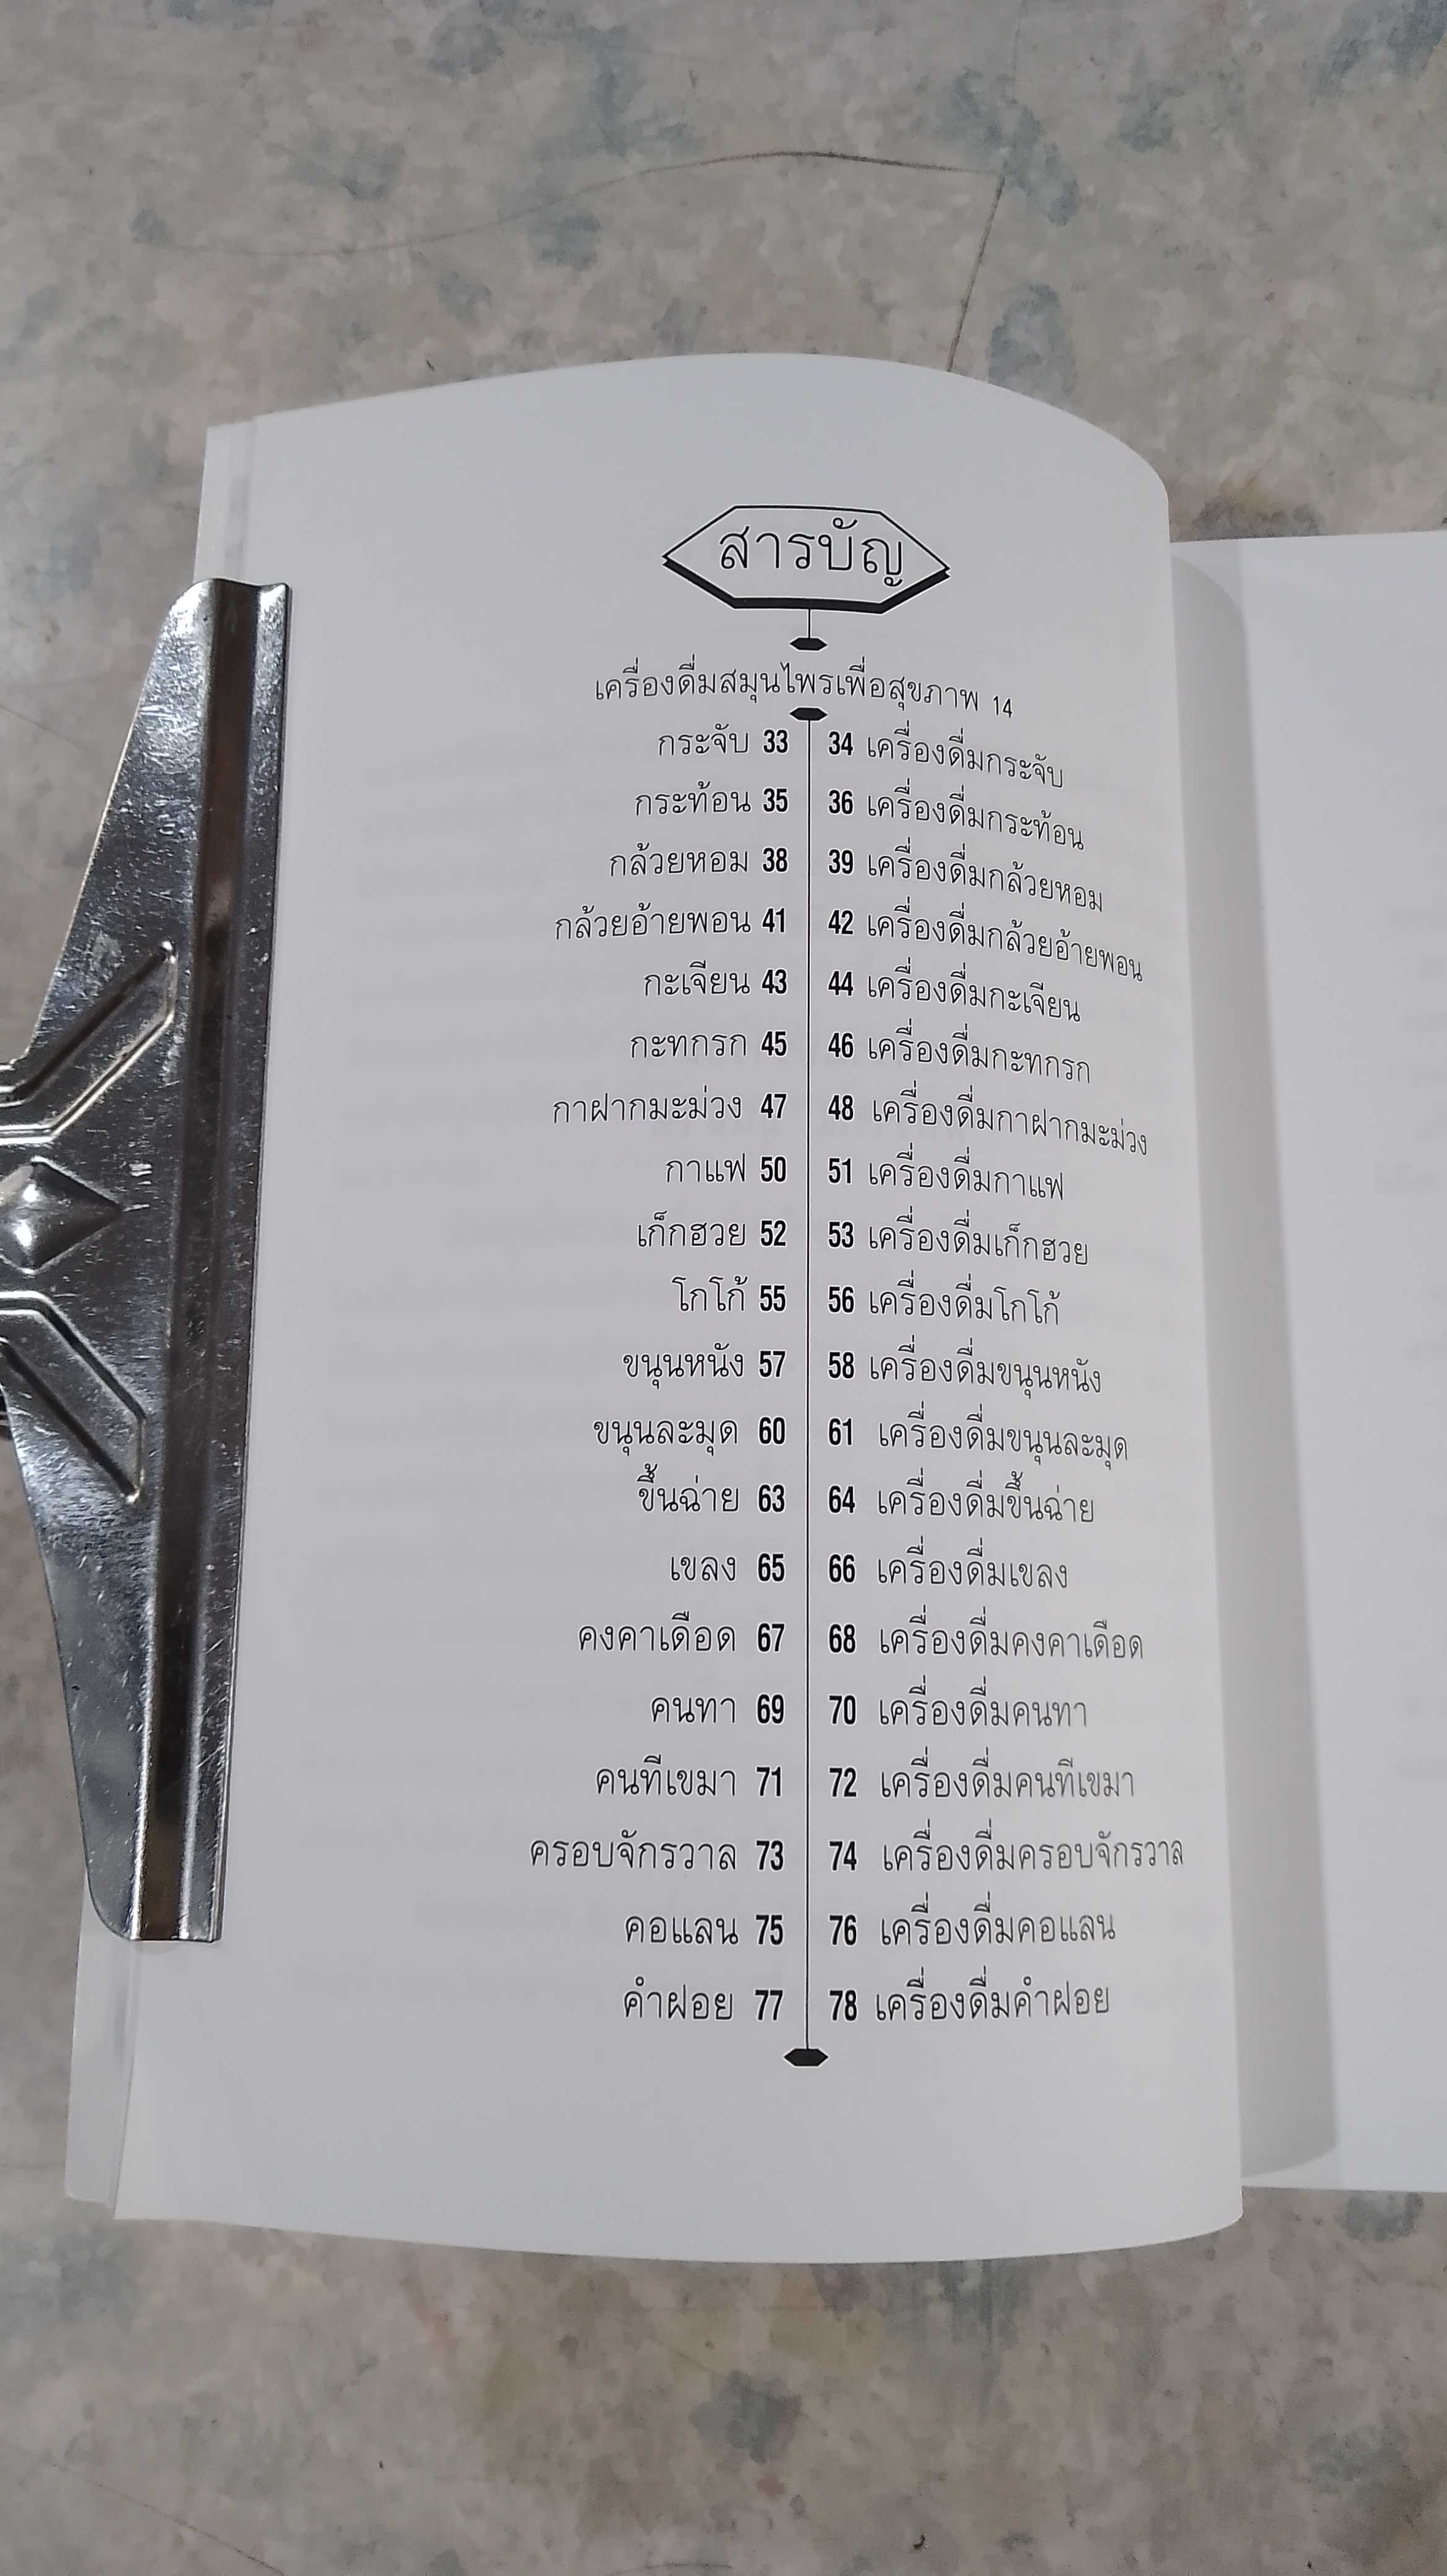 สารบัญ
เครื่องดื่มสมุนไพรเพื่อสุขภาพ 14
กระจับ 33 34 เครื่องดื่มกระจับ
กระท้อน 35 36 เครื่องดื่มกระท้อน
กล้วยหอม 38 39 เครื่องดื่มกล้วยหอม
กล้วยอ้ายพอน 41 42 เครื่องดื่มกล้วยอ้ายพอน
กะเจียน 43 44 เครื่องดื่มกะเจียน
กะทกรก 45 46 เครื่องดื่มกะทกรก
กาฝากมะม่วง 47 48 เครื่องดื่มกาฝากมะม่วง
กาแฟ 50 51 เครื่องดื่มกาแฟ
เก็กฮวย 52 53 เครื่องดื่มเก็กฮวย
โกโก้ 55 56 เครื่องดื่มโกโก้
ขนุนหนัง 57 58 เครื่องดื่มขนุนหนัง
ขนุนละมุด 60 61 เครื่องดื่มขนุนละมุด
ขึ้นฉ่าย 63 64 เครื่องดื่มขึ้นฉ่าย
เขลง 65 66 เครื่องดื่มเขลง
คงคาเดือด 67 68 เครื่องดื่มคงคาเดือด
คนทา 69 70 เครื่องดื่มคนทา
คนทีเขมา 71 72 เครื่องดื่มคนทีเขมา
ครอบจักรวาล 73 74 เครื่องดื่มครอบจักรวาล
คอแลน 75 76 เครื่องดื่มคอแลน
คำฝอย 77 78 เครื่องดื่มคำฝอย